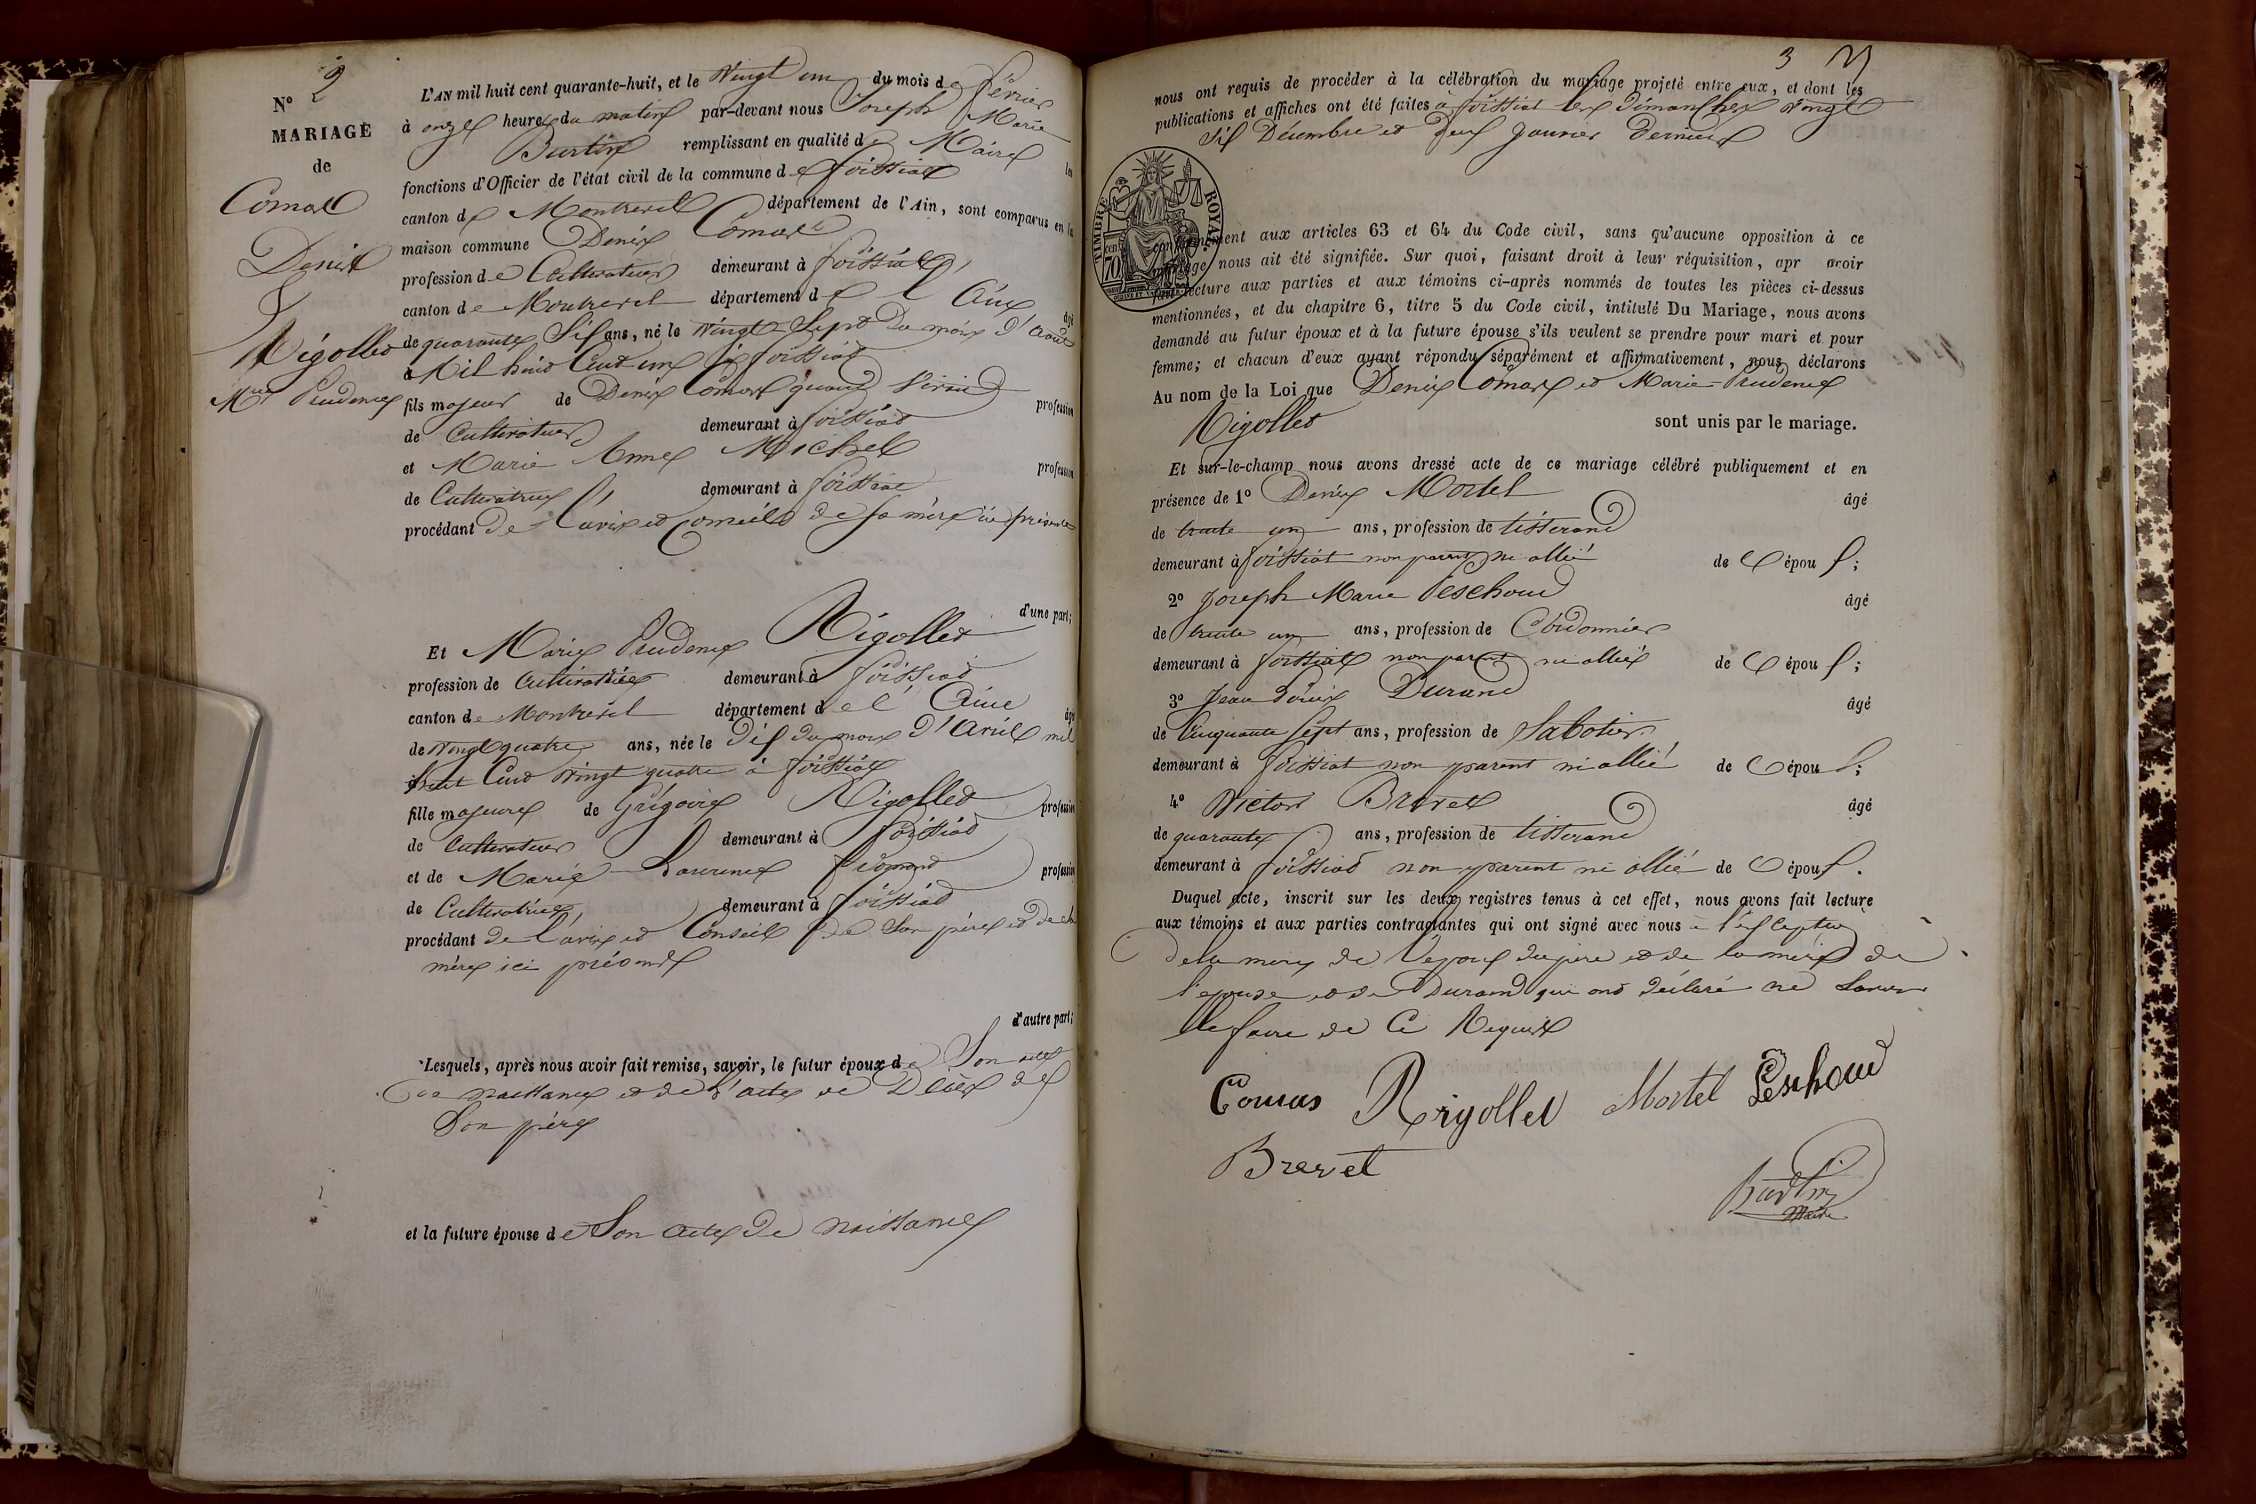 N° 2
MARIAGE
de
Comas
Denis
&
Rigollet
Mie Prudence
L'AN mil huit cent quarante-huit, et le vingt un du mois de février
à onze heures du matin par-devant nous Joseph Marie
Burtin remplissant en qualité de Maire les
fonctions d'Officier de l'état civil de la commune de foissiat
canton de Montrevel département de l'Ain, sont comparus en la
maison commune Denis Comas
profession de Cultivateur demeurant à foissiat
canton de Montrevel département de l'Ain âgé
de quarante Six ans, né le vingt Sept du mois d'Août
Mil huit Cent un à foissiat
fils majeur de Denis Comas quand vivait profession
de Cultivateur demeurant à foissiat
et Marie Anne Michel profession
de Cultivatrice demeurant à foissiat
procédant de l'avis et Conseil de sa mère ici présente
d'une part;
Et Marie Prudence Rigollet
profession de Cultivatrice demeurant à foissiat
canton de Montrevel département de l'Ain âgée
de vingt quatre ans, née le dix du mois d'Avril mil
huit Cent vingt quatre à foissiat
fille majeure de Grégoire Rigollet profession
de Cultivateur demeurant à foissiat
et de Marie Laurence profession
de Cultivatrice demeurant à foissiat
procédant de l'avis et Conseil de Son père et de sa
mère ici présents
d'autre part;
Lesquels, après nous avoir fait remise, savoir, le futur époux de Son acte
de naissance et de l'acte de Décès de
Son père
et la future épouse de Son acte de naissance
3
nous ont requis de procéder à la célébration du mariage projeté entre eux, et dont les
publications et affiches ont été faites à foissiat les dimanches vingt
Six Décembre et deux Janvier derniers
TIMBRE ROYAL
70 cent
conformément aux articles 63 et 64 du Code civil, sans qu'aucune opposition à ce
mariage nous ait été signifiée. Sur quoi, faisant droit à leur réquisition, apr avoir
fait lecture aux parties et aux témoins ci-après nommés de toutes les pièces ci-dessus
mentionnées, et du chapitre 6, titre 5 du Code civil, intitulé Du Mariage, nous avons
demandé au futur époux et à la future épouse s'ils veulent se prendre pour mari et pour
femme; et chacun d'eux ayant répondu séparément et affirmativement, nous déclarons
Au nom de la Loi que Denis Comas et Marie-Prudence
Rigollet sont unis par le mariage.
Et sur-le-champ nous avons dressé acte de ce mariage célébré publiquement et en
présence de 1° Denis Mortel âgé
de trente un ans, profession de tisserand
demeurant à foissiat non parent ni allié de l'épou x;
2° Joseph Marie Peschoud âgé
de trente un ans, profession de Cordonnier
demeurant à foissiat non parent ni allié de l'épou x;
3° Jean Louis Durand âgé
de Cinquante Sept ans, profession de Sabotier
demeurant à foissiat non parent ni allié de l'épou x;
4° Victor Brevet âgé
de quarante ans, profession de tisserand
demeurant à foissiat non parent ni allié de l'épou x.
Duquel acte, inscrit sur les deux registres tenus à cet effet, nous avons fait lecture
aux témoins et aux parties contractantes qui ont signé avec nous à l'exception
de la mère de l'époux du père et de la mère de
l'épouse et de Durand qui ont déclaré ne savoir
le faire de Ce Requis
Comas Rigollet Mortel Peschoud
Brevet
Burtin
Maire